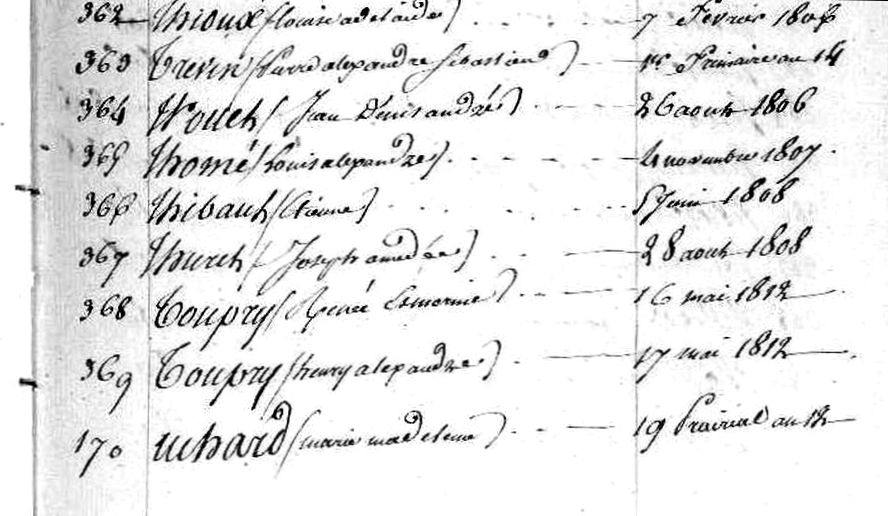 362 Thioux (Louise adelaide) 7 Fevrier 1806
363 Trevin (Pierre alexandre Sebastien) 1er Frimaire an 14
364 (Jean Denis andré) 26 aout 1806
365 Thomé (Louis alexandre) 4 novembre 1807
366 Thibaut (Etienne) 5 Juin 1808
367 Thuret (Joseph amedée) 28 aout 1808
368 Toupry (Renée) 16 mai 1812
369 Toupry (henry alexandre) 17 mai 1812
170 uchard (marie madeleine) 19 Prairial an 12